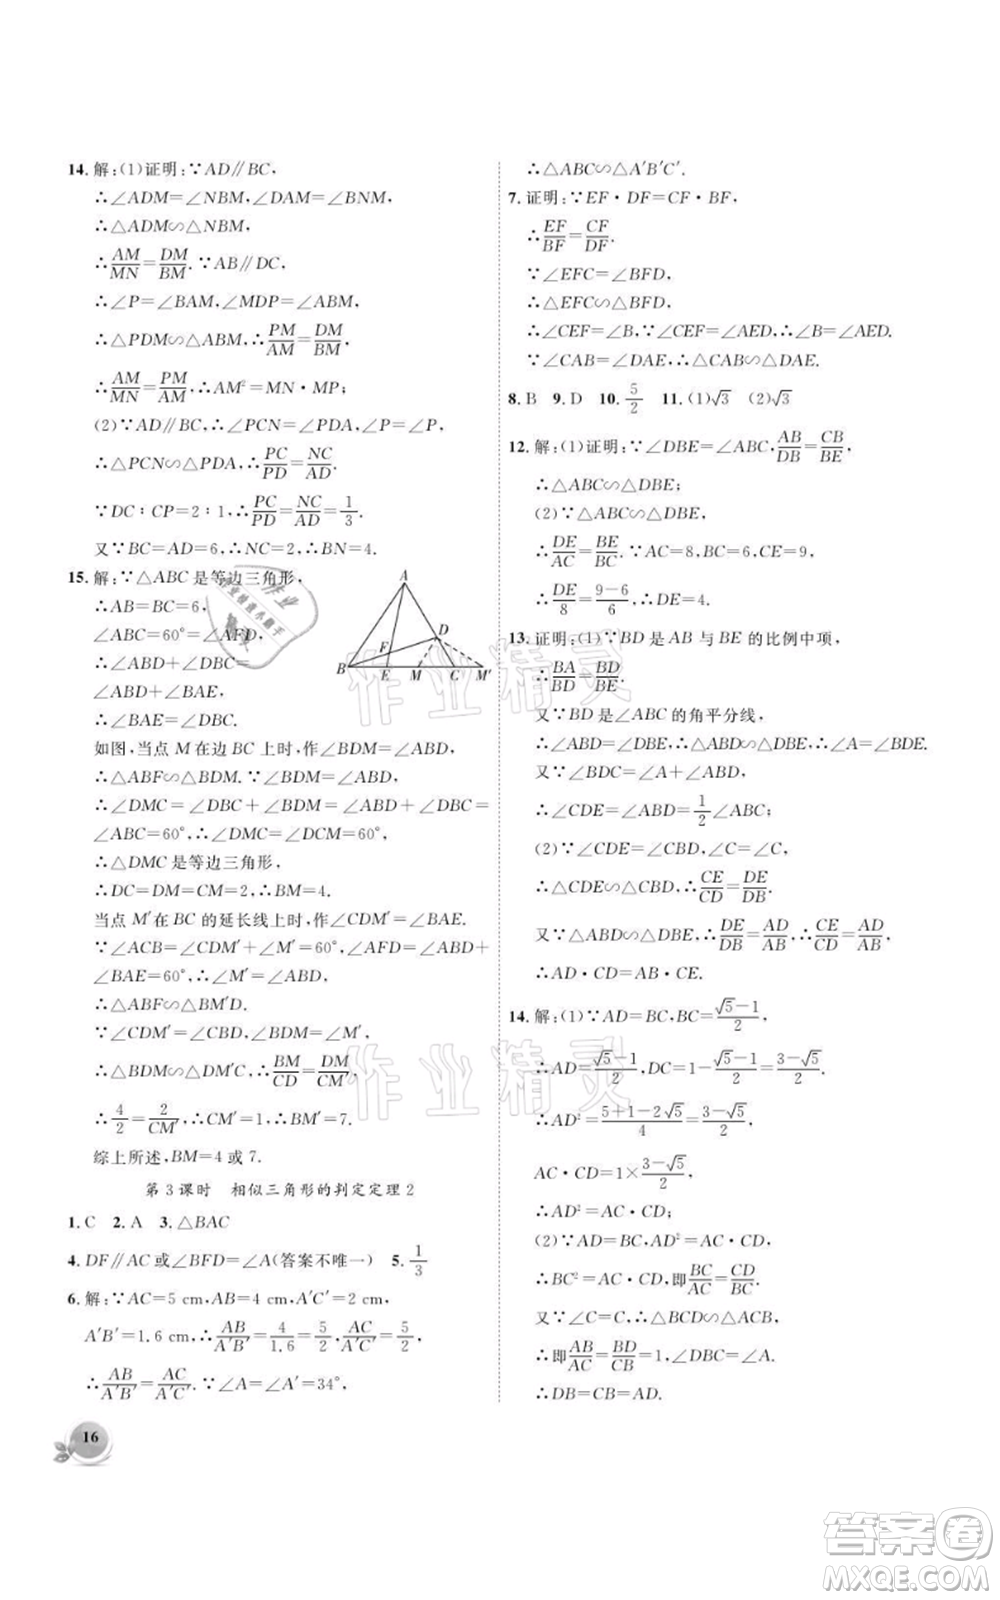 14. 解:(1)证明:∵AD∥BC,
∴∠ADM=∠NBM,∠DAM=∠BNM,
∴△ADM∽△NBM,
∴AM/MN=DM/BM.∵AB∥DC,
∴∠P=∠BAM,∠MDP=∠ABM,
∴△PDM∽△ABM,∴PM/AM=DM/BM,
∴AM/MN=PM/AM,∴AM²=MN·MP;
(2)∵AD∥BC,∴∠PCN=∠PDA,∠P=∠P,
∴△PCN∽△PDA.∴PC/PD=NC/AD.
∵DC∶CP=2∶1,∴PC/PD=NC/AD=1/3.
又∵BC=AD=6,∴NC=2,∴BN=4.
15. 解:∵△ABC是等边三角形,
∴AB=BC=6,
∠ABC=60°=∠AFD,
∴∠ABD+∠DBC=
∠ABD+∠BAE,
∴∠BAE=∠DBC.
如图,当点M在边BC上时,作∠BDM=∠ABD,
∴△ABF∽△BDM.∵∠BDM=∠ABD,
∴∠DMC=∠DBC+∠BDM=∠ABD+∠DBC=
∠ABC=60°,∴∠DMC=∠DCM=60°,
∴△DMC是等边三角形,
∴DC=DM=CM=2,∴BM=4.
当点M′在BC的延长线上时,作∠CDM′=∠BAE.
∵∠ACB=∠CDM′+∠M′=60°,∠AFD=∠ABD+
∠BAE=60°,∴∠ABD=∠M′,
∴△ABF∽△BM′D.
∵∠CDM′=∠BAE=∠DBC,∠M′=∠M′,
∴△BDM′∽△DM′C,∴BM/CD=DM/CM′,
∴4/2=2/CM′,∴CM′=1,∴BM′=7.
综上所述,BM=4或7.
第3课时 相似三角形的判定定理2
1. C 2. A 3. △BAC
4. DF∥AC或∠BFD=∠A(答案不唯一) 5. 1/3
6. 解:∵AC=5 cm,AB=4 cm,A′C′=2 cm,
A′B′=1.6 cm,∴AB/A′B′=4/1.6=5/2,AC/A′C′=5/2,
∴AB/A′B′=AC/A′C′.又∵∠A=∠A′=34°,
16
∴△ABC∽△A′B′C′.
7. 证明:∵EF·DF=CF·BF,
∴EF/BF=CF/DF.
∵∠EFC=∠BFD,
∴△EFC∽△BFD,
∴∠CEF=∠B,∵∠CEF=∠AED,∴∠B=∠AED.
∵∠CAB=∠DAE,∴△CAB∽△DAE.
8. B 9. D 10. 5/2 11. (1)√3 (2)√3
12. 解:(1)证明:∵∠DBE=∠ABC,AB/DB=CB/BE,
∴△ABC∽△DBE;
(2)∵△ABC∽△DBE,
∴DE/AC=BE/BC.∵AC=8,BC=6,CE=9,
∴DE/8=9-6/6,∴DE=4.
13. 证明:(1)∵BD是AB与BE的比例中项,
∴BA/BD=BD/BE.
又∵BD是∠ABC的角平分线,
∴∠ABD=∠DBE,∴△ABD∽△DBE,∴∠A=∠BDE.
又∵∠BDC=∠A+∠ABD,
∴∠CDE=∠ABD=1/2∠ABC;
(2)∵∠CDE=∠ABD,∠C=∠C,
∴△CDE∽△CBD,∴CE/CD=DE/DB.
又∵△ABD∽△DBE,∴DE/DB=AD/AB,∴CE/CD=AD/AB,
∴AD·CD=AB·CE.
14. 解:(1)∵AD=BC,BC=√5-1/2,
∴AD=√5-1/2,DC=1-√5-1/2=3-√5/2.
∴AD²=5+1-2√5/4=3-√5/2,
AC·CD=1×3-√5/2.
∴AD²=AC·CD;
(2)∵AD=BC,AD²=AC·CD,
∴BC²=AC·CD,即BC/AC=CD/BC.
又∵∠C=∠C,∴△BCD∽△ACB,
∴AB/AC=BD/CB=1,∠DBC=∠A.
∴DB=CB=AD.
A
D
F
B E M C M′
作业精灵
作业精灵
答案圈
MXQE.COM